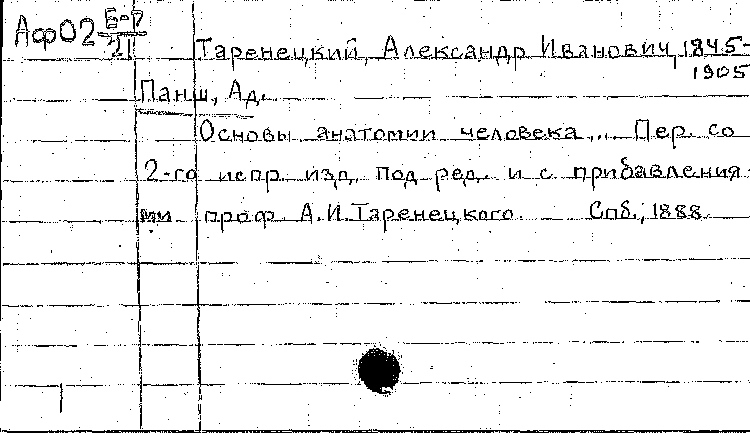 АфО2 Б-7/21
Таренецкий, Александр Иванович, 1845-
1905
Панш, Ад.
Основы анатомии человека... Пер. со
2-го испр. изд. под ред. и с прибавления-
ми проф. А.И.Таренецкого. Спб., 1888.